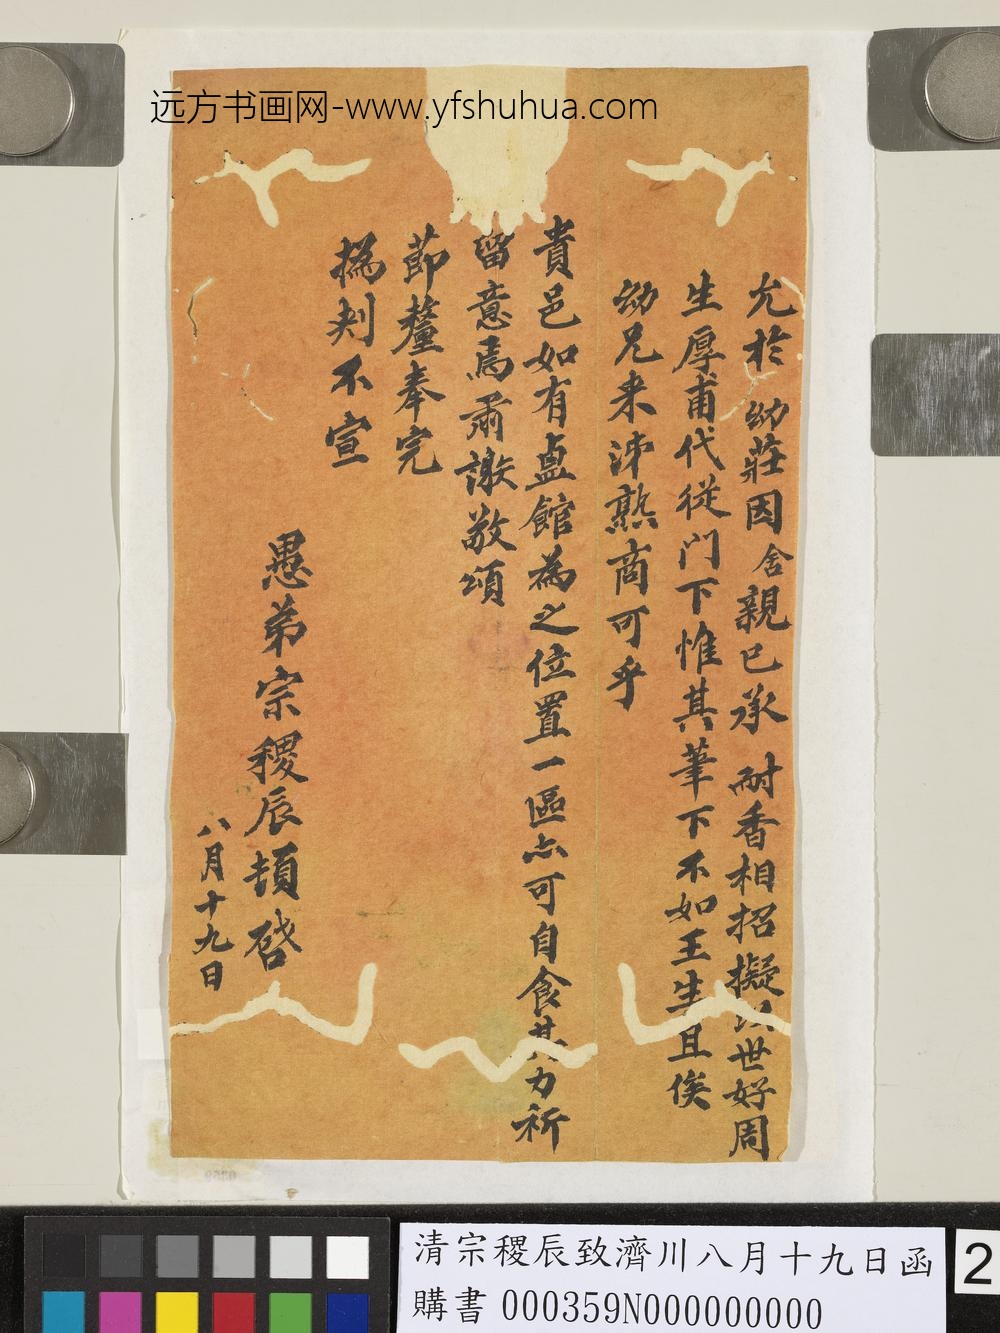 远方书画网-www.yfshuhua.com
允於幼莊因舍親已承 耐香相招擬以世好周
生厚甫代從门下惟其筆下不如王生且俟
幼兄来沛熟商可乎
貴邑如有盍館為之位置一區亦可自食其力祈
留意焉肅謝敬頌
節釐奉完
撝刾不宣
愚弟宗稷辰頓啓
八月十九日
清宗稷辰致濟川八月十九日函
購書 000359N000000000
2